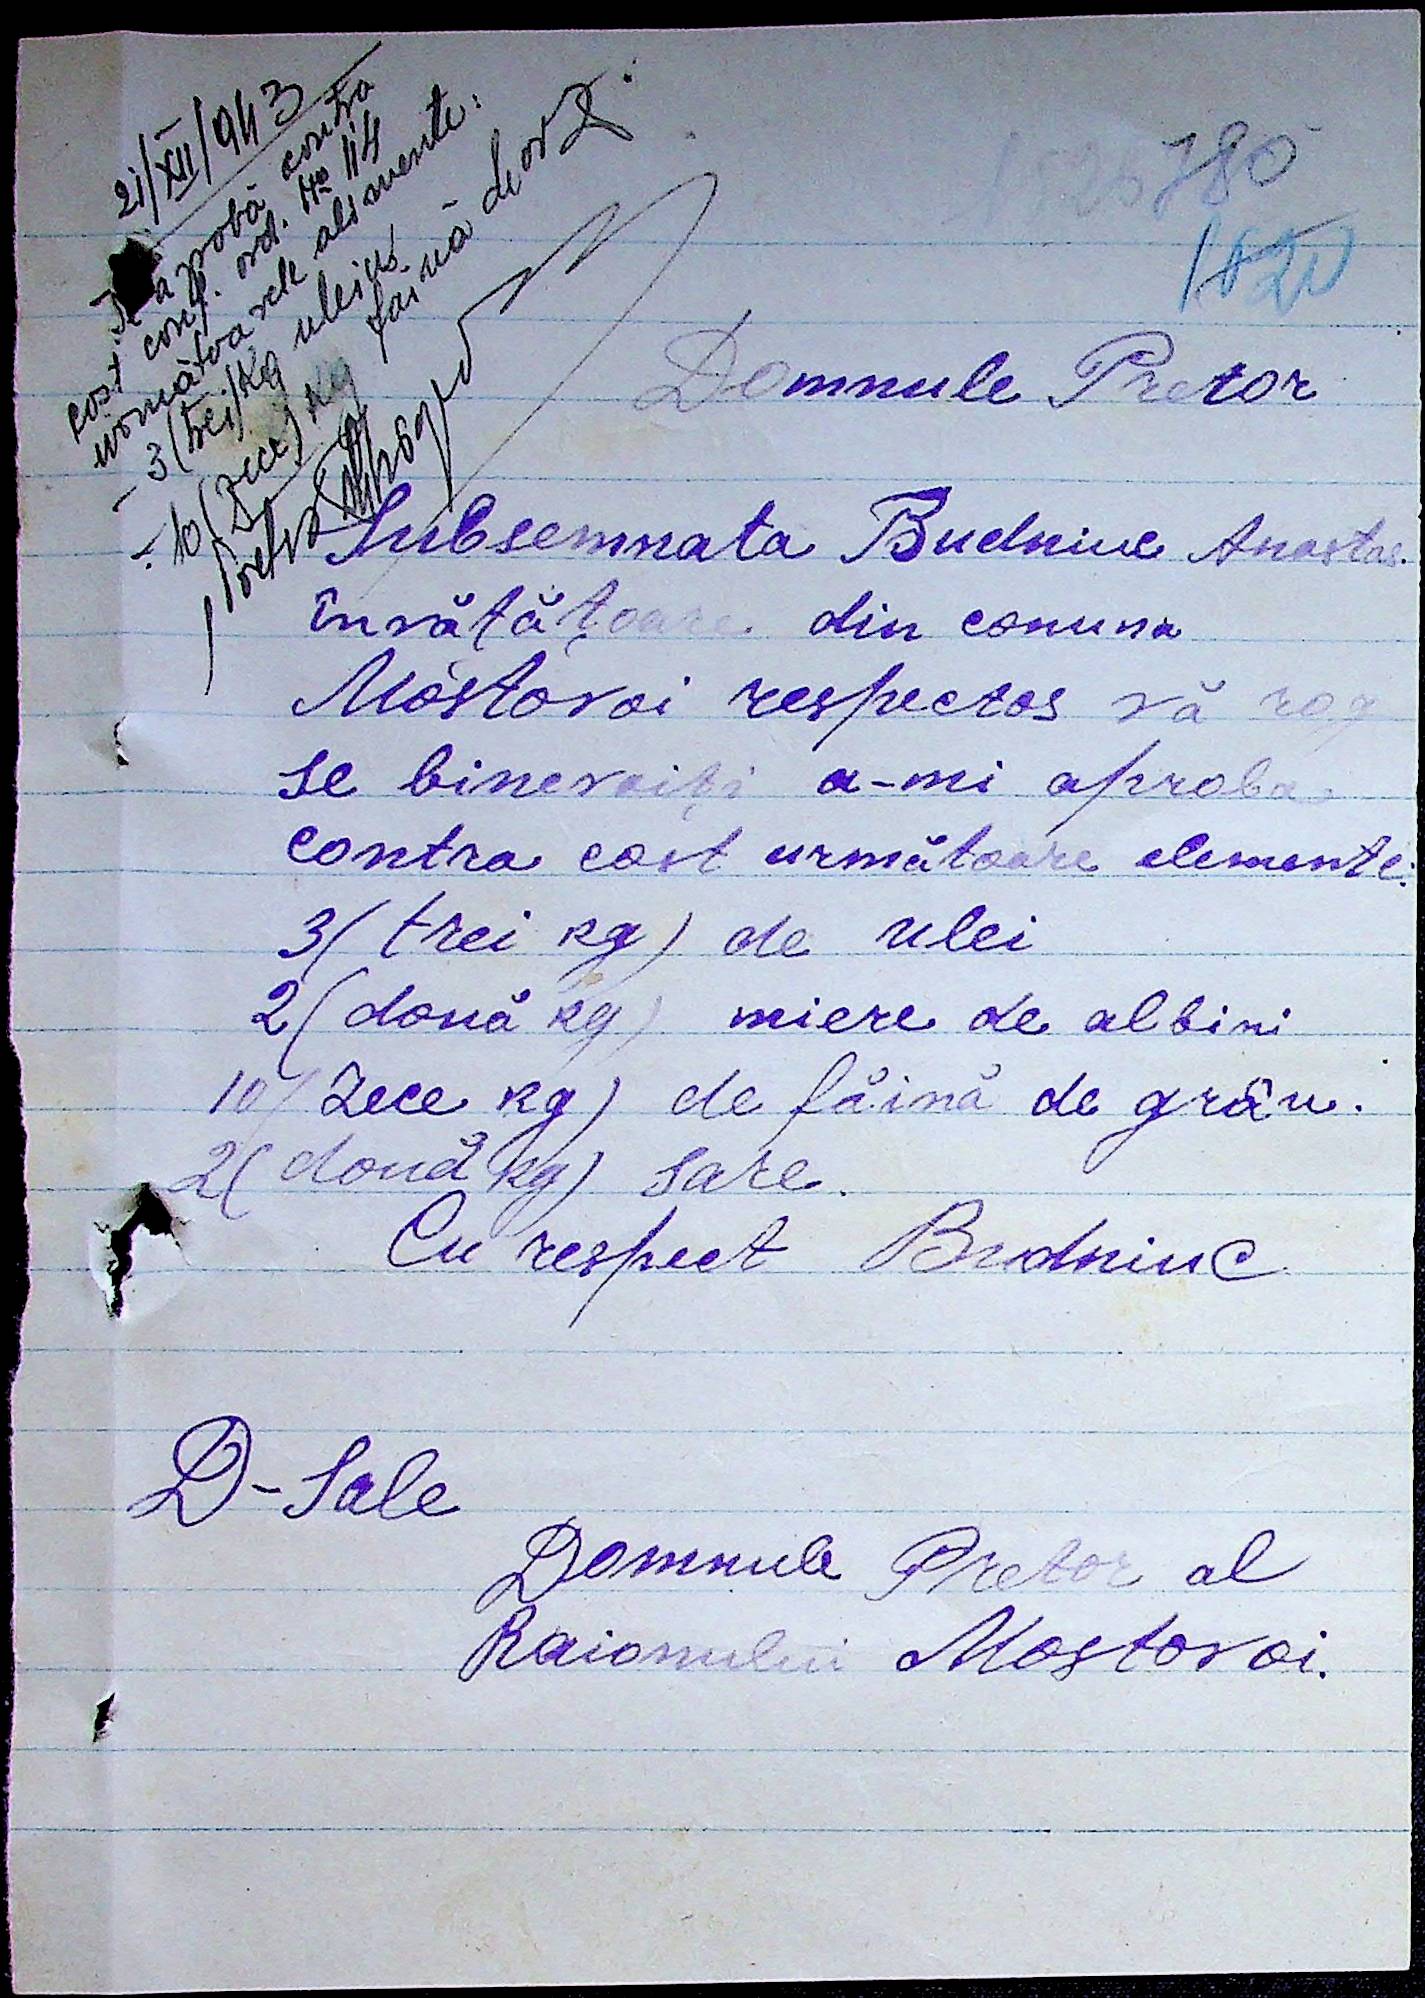 21/XII/943
Se aprobă contra
cost conf. ord. No 114
următoarele alimente:
- 3 (trei) kg uleiu
- 10 (zece) kg făină de orz.
Pretor
780
1820
Domnule Pretor
Subsemnata Budniuc Anastas.
învățătoare din comuna
Mostovoi respectos vă rog
se binevoiți a-mi aproba
contra cost următoare elemente:
3 (trei kg) de ulei
2 (două kg) miere de albini
10 (zece kg) de făină de grâu.
2 (două kg) sare.
Cu respect Budniuc
D-Sale
Domnule Pretor al
Raionului Mostovoi.